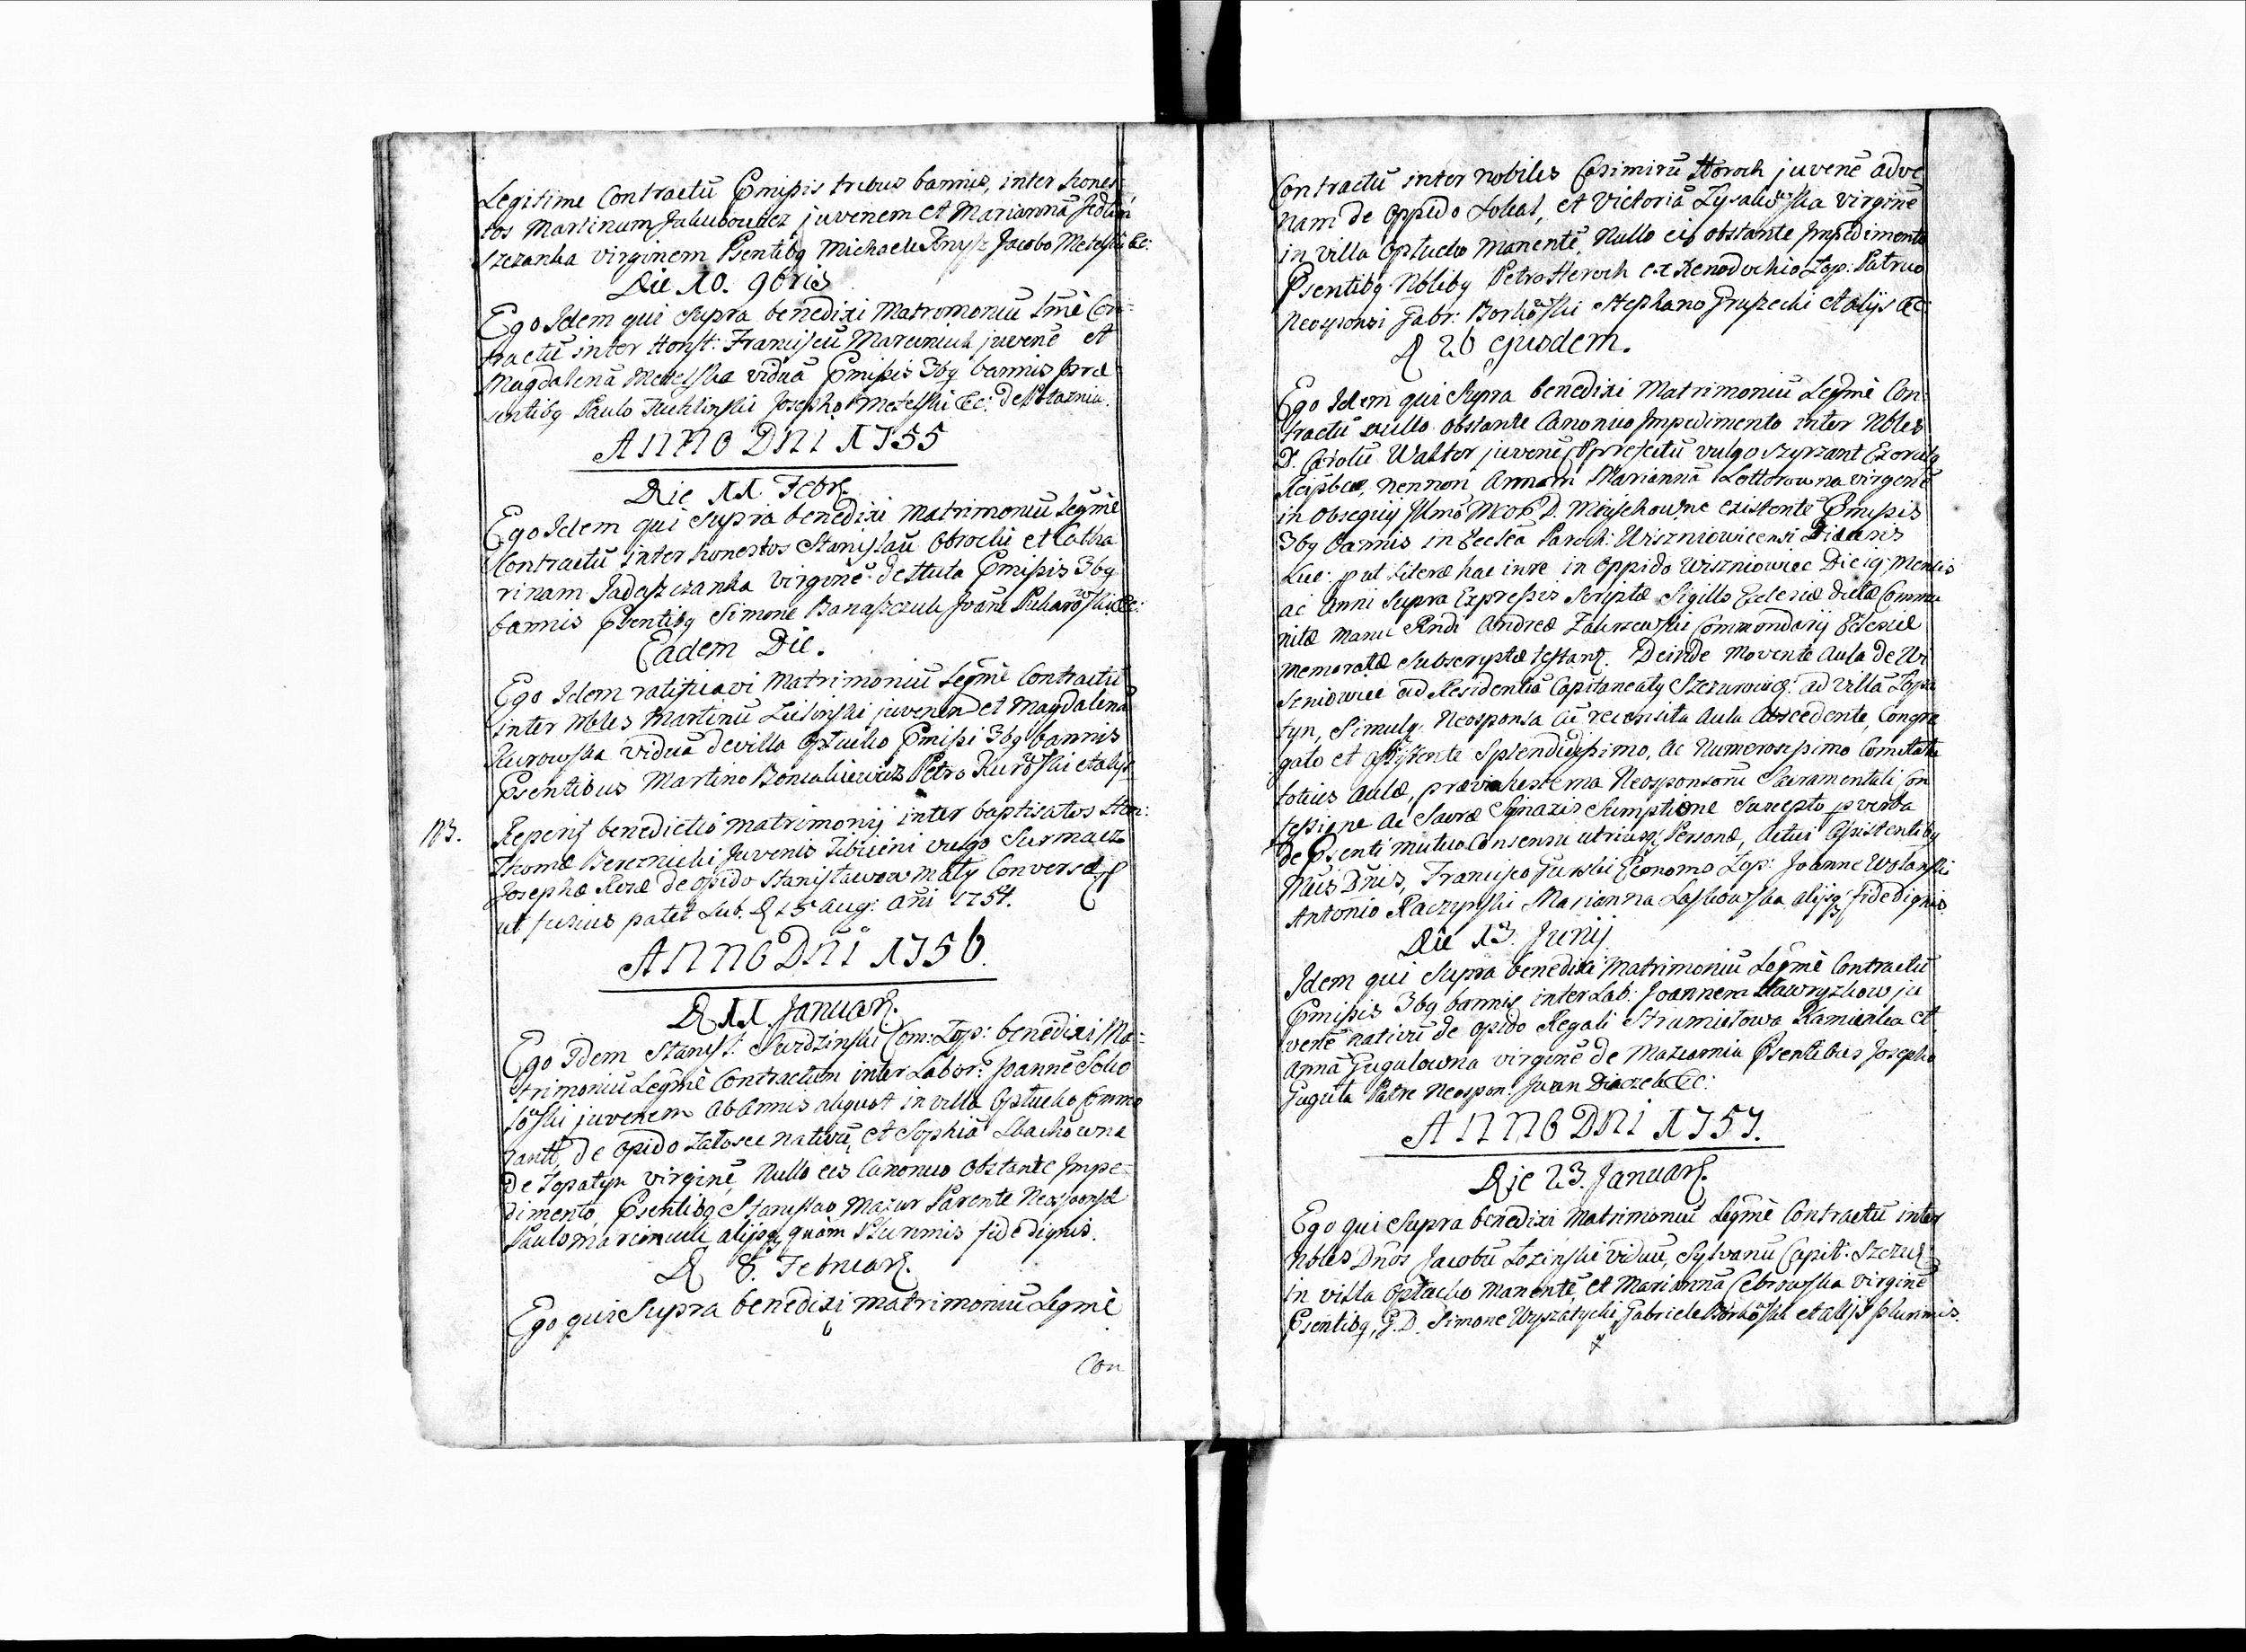 Legitime Contractū Pmissis tribus bannis, inter hones
tos Martinum Jakubowicz juvenem et Mariannā Jedlin
szczanka virginem Psentibq Michaele Jacobo Metelski &c:
Die 10. 9bris
Ego Idem qui supra benedixi Matrimoniū Ltmè Con=
tractū inter Honst: Franciscū Marciniuk juvenē et
Magdalenā Metelska viduā Pmissis 3bq bannis præ
sentibq Paulo Kuklinski Josepho Metelski &c: de
ANNO DNI 1755
Die 11 Febr.
Ego Idem qui supra benedixi matrimoniū Legmè
Contractū inter honestos Stanislaū Obroclii et Catha
rinam Tadeyszczanka virginē Pmissis 3bq
bannis Psentibq Simone Banaszczuk Joāne &c:
Eadem Die.
Ego Idem ratificavi Matrimoniū Legmè Contractū
inter Nbles Martinū juvenem et Magdalenā
Kurowska viduā de villa Opłucko Pmissi 3bq bannis
Psentibus Martino Petro Kurowski et alys
N3. Reperit benedictio matrimonij inter baptisatos Hon:
Thomæ Bereznicki Juvenis Tibicini vulgo Surmacz
Josephæ de opido Stanisławow Conversæ
ut fusius patet sub. D 15 Aug: Ani 1754.
ANNO DNI 1756.
D 11 Januar.
Ego Idem Stanisl. Surdzinski Com: Lop: benedixi Ma=
trimoniū Legmè Contractum inter Labor: Joannē Soko
łowski juvenem ab Annis aliquot in villa Opłucko Commo
rantē, de opido Załosce nativū, et Sophiā Lbachowna
de Lopatyn virginē, Nullo eis Canonico obstante Impe=
dimento, Psentibq Stanislao Mazur Parente Neosponsæ
Paulo Marciniuk alijsq quàm plurimis fide dignis.
D 8. Februar.
Ego qui supra benedixi matrimoniū Legmè
6
Con
Contractū inter nobiles Casimirū Horoch juvenē adve
nam de Oppido Sokal, et Victoriā Lysakowska virginē
in villa Opłucko Manentē, Nullo eis obstante Impedimento
Psentibq Nblibq Petro Horoch ex Xenodochio Lop: Patruo
Neosponsi Gabr: Borkowski Stephano Gruszecki et alijs &c:
D 26 ejusdem.
Ego Idem qui supra benedixi Matrimoniū Legmè Con=
tractū nullo obstante Canonico Impedimento inter Nbles
D. Carolū Walter juvenē Præfectū vulgo Szyrzant Exercitq
Reipbcæ, nennon Annam Mariannā Lottorowna virginē
in obsequij Illmæ D. existentē Pmissis
3bq bannis in Ecclea Paroch: Wiszniowicensi
Luc: put literæ hac in re in Oppido Wiszniowiec Die 19 Mensis
ac Anni supra Expressis Scriptæ Sigillo Ecclesiæ dictæ Commu
nitæ manu Rndi Andreæ Zakrzewski Commendarij Eclesiæ
Memoratæ subscriptæ testant. Deinde movente Aula de Wi
szniowiec ad Residentiā Capitaneatq ad villā Lopa
tyn, simulq Neosponsa cū recensita Aula Abscedente, Congre
gato et assistente splendidissimo, ac Numerosissimo Comitatu
totius Aulæ, prævia hesterna Neosponsorū Sacramentali Con
fessione ac Sacræ Synaxis Sumptione suscepto p verba
de Psenti mutuo Consensu utriusq Personæ, Actui Assistentibq
Mcis Dnis, Francisco Economo Lop: Joanne Wolanski
Antonio Raczynski Marianna Laskowska alijsq fide dignis.
Die 13. Junij
Idem qui Supra benedixi Matrimoniū Legmè Contractū
Pmissis 3bq bannis inter Lab: Joannem Hawryzkow ju
venē nativū de opido Regali Strumiełowa Kamienka et
Annā Gugulowna virginē de Maziarnia Psentibus Josepho
Guguła Patre Neospon: Iwan Diaczek &c:
ANNO DNI 1757.
Die 23. Januar.
Ego qui Supra benedixi Matrimoniū Legmè Contractū inter
Nbles Dnos Jacobū Lozinski viduū, Sylvanū Capit: Szczur
in villa Opłucko Manentē, et Mariannā Cebrowska virginē
Psentibq, G.D. Simone Wyszatycki, Gabriele Borkowski et alijs plurimis.